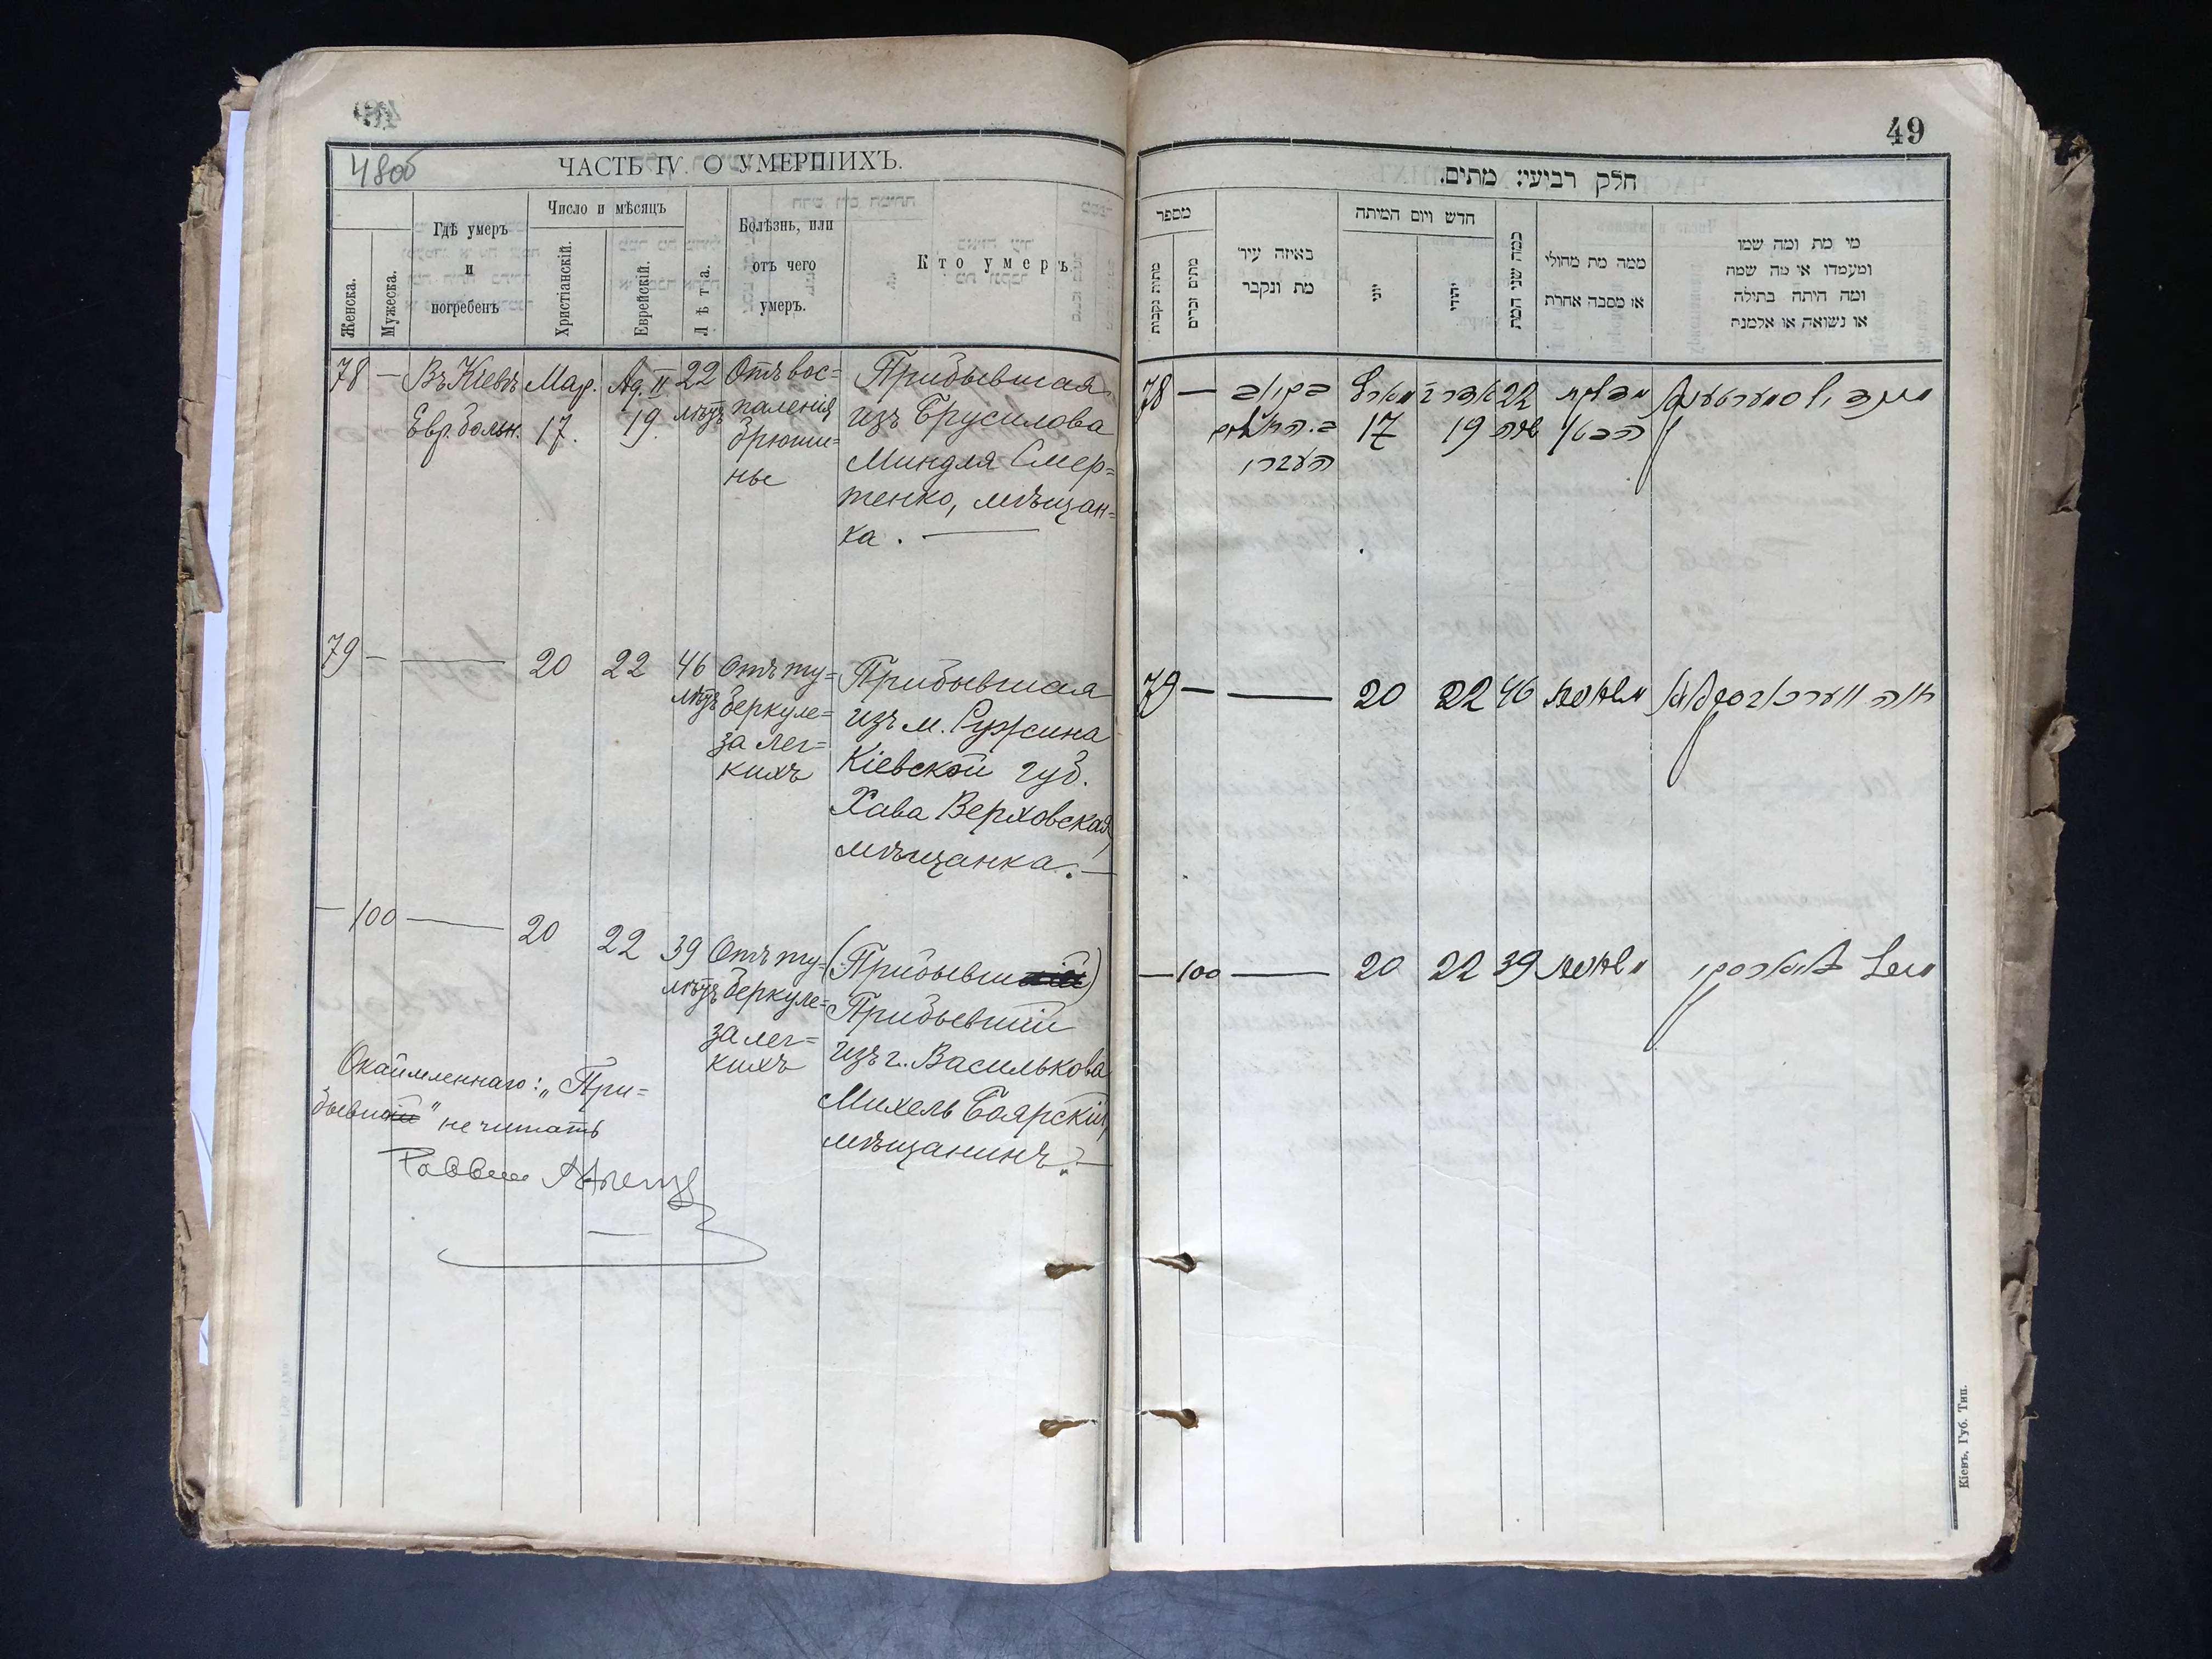 48об
ЧАСТЬ IV. О УМЕРШИХЪ.
Женска.
Мужеска.
Гдѣ умеръ
и
погребенъ
Число и мѣсяцъ
Христіанскій.
Еврейскій.
Лѣта.
Болѣзнь, или
отъ чего
умеръ.
Кто умеръ.
78 — Въ Кіевѣ Мар. Ад. II 22 Отъ вос=
Евр. больн. 17. 19. лѣтъ паленія
брюши=
ны
Прибывшая
изъ Брусилова
Миндля Смер=
тенко, мѣщан=
ка. —
79 — — 20 22 46 Отъ ту=
лѣтъ беркуле=
за лег=
кихъ
Прибывшая
изъ м. Ружина
Кіевской губ.
Хава Верховская,
мѣщанка. —
— 100 — 20 22 39 Отъ ту=
лѣтъ беркуле=
за лег=
кихъ
(Прибывшій)
Прибывшій
изъ г. Василькова
Михель Боярскій,
мѣщанинъ. —
Окаймленнаго: „При=
бывшій" не читать
Раввин
49
חלק רביעי: מתים.
מספר
מתות נקבות
מתים זכרים
באיזה עיר
מת ונקבר
חדש ויום המיתה
יוני
יהודי
כמה שני המת
ממה מת מחולי
או מסבה אחרת
מי מת ומה שמו
ומעמדו או מה שמה
ומה היתה בתולה
או נשואה או אלמנה
78 — בקיוב מארץ אדר 22
17 19 שנה הבטן
העברי
79 — — 20 22 46 משחפת
— 100 — 20 22 39 משחפת
Кіевъ, Губ. Тип.